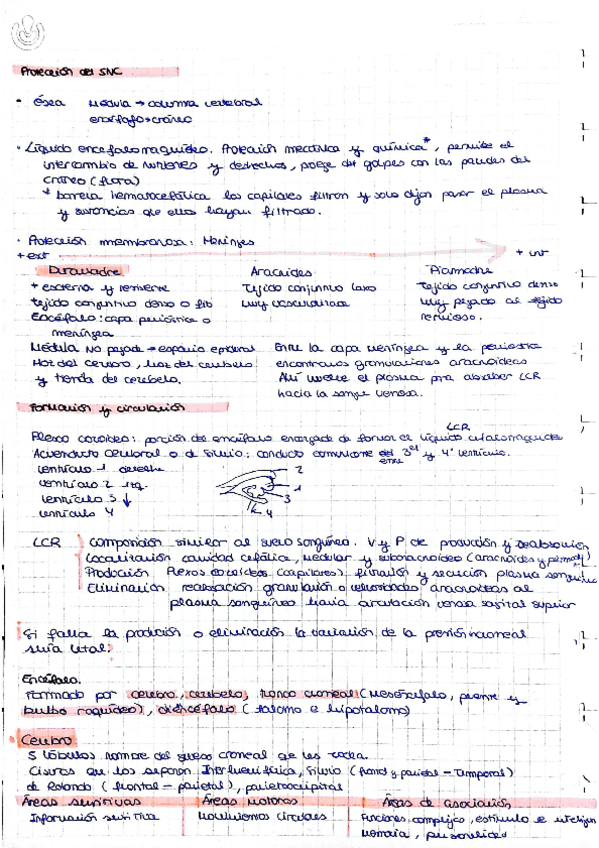 Protección del SNC
• ósea Médula → columna vertebral
encéfalo → cráneo
• Líquido encefaloraquídeo. Protección mecánica y química*, permite el
intercambio de nutrientes y desechos, golpes con las paredes del
cráneo (flota)
* barrera hematocefálica los capilares filtran y solo dejan pasar el plasma
y sustancias que ellos hayan filtrado.
• Protección membranosa: Meninges
+ ext → + int
Duramadre Aracnoides Piamadre
+ externa y resistente Tejido conjuntivo laxo Tejido conjuntivo denso
tejido conjuntivo denso o fib Muy vascularizada Muy pegado al tejido
Encéfalo: capa perióstica o nervioso.
meníngea
Médula No pegada → espacio epidural Entre la capa meníngea y la perióstica
Hoz del cerebro, hoz del cerebelo encontramos granulaciones aracnoideas
y tienda del cerebelo. Ahí vuelve el plasma para absorber LCR
hacia la sangre venosa.
Formación y circulación
LCR
Plexo coroideo: porción del encéfalo encargada de formar el líquido
Acueducto cerebral o de Silvio: conducto comunicante entre 3er y 4º ventrículo.
ventrículo 1 derecho 2
ventrículo 2 izq. 1
ventrículo 3 ↓ 3
ventrículo 4 4
LCR Composición similar al suero sanguíneo. V y P de producción y reabsorción
Localización cavidad cefálica, medular y subaracnoideo (aracnoides y piamadre)
Producción Plexos coroideos (capilares) filtración y secreción plasma sanguíneo
Eliminación reabsorción granulación o vellosidades aracnoideas al
plasma sanguíneo hacia circulación venosa sagital superior
Si falla la produción o eliminación la variación de la presión
sería letal.
Encéfalo.
Formado por cerebro, cerebelo, tronco (Mesencéfalo, puente y
bulbo raquídeo), diencéfalo (tálamo e hipotálamo)
• Cerebro
5 lóbulos nombre del hueso craneal que les rodea.
Cisuras que los separan Interhemisférica, Silvio (frontal y parietal - Temporal)
de Rolando (frontal - parietal), parietooccipital
Áreas sensitivas Áreas motoras Áreas de asociación
Información sensitiva Movimientos Funciones complejas, estímulo e
memoria, personalidad